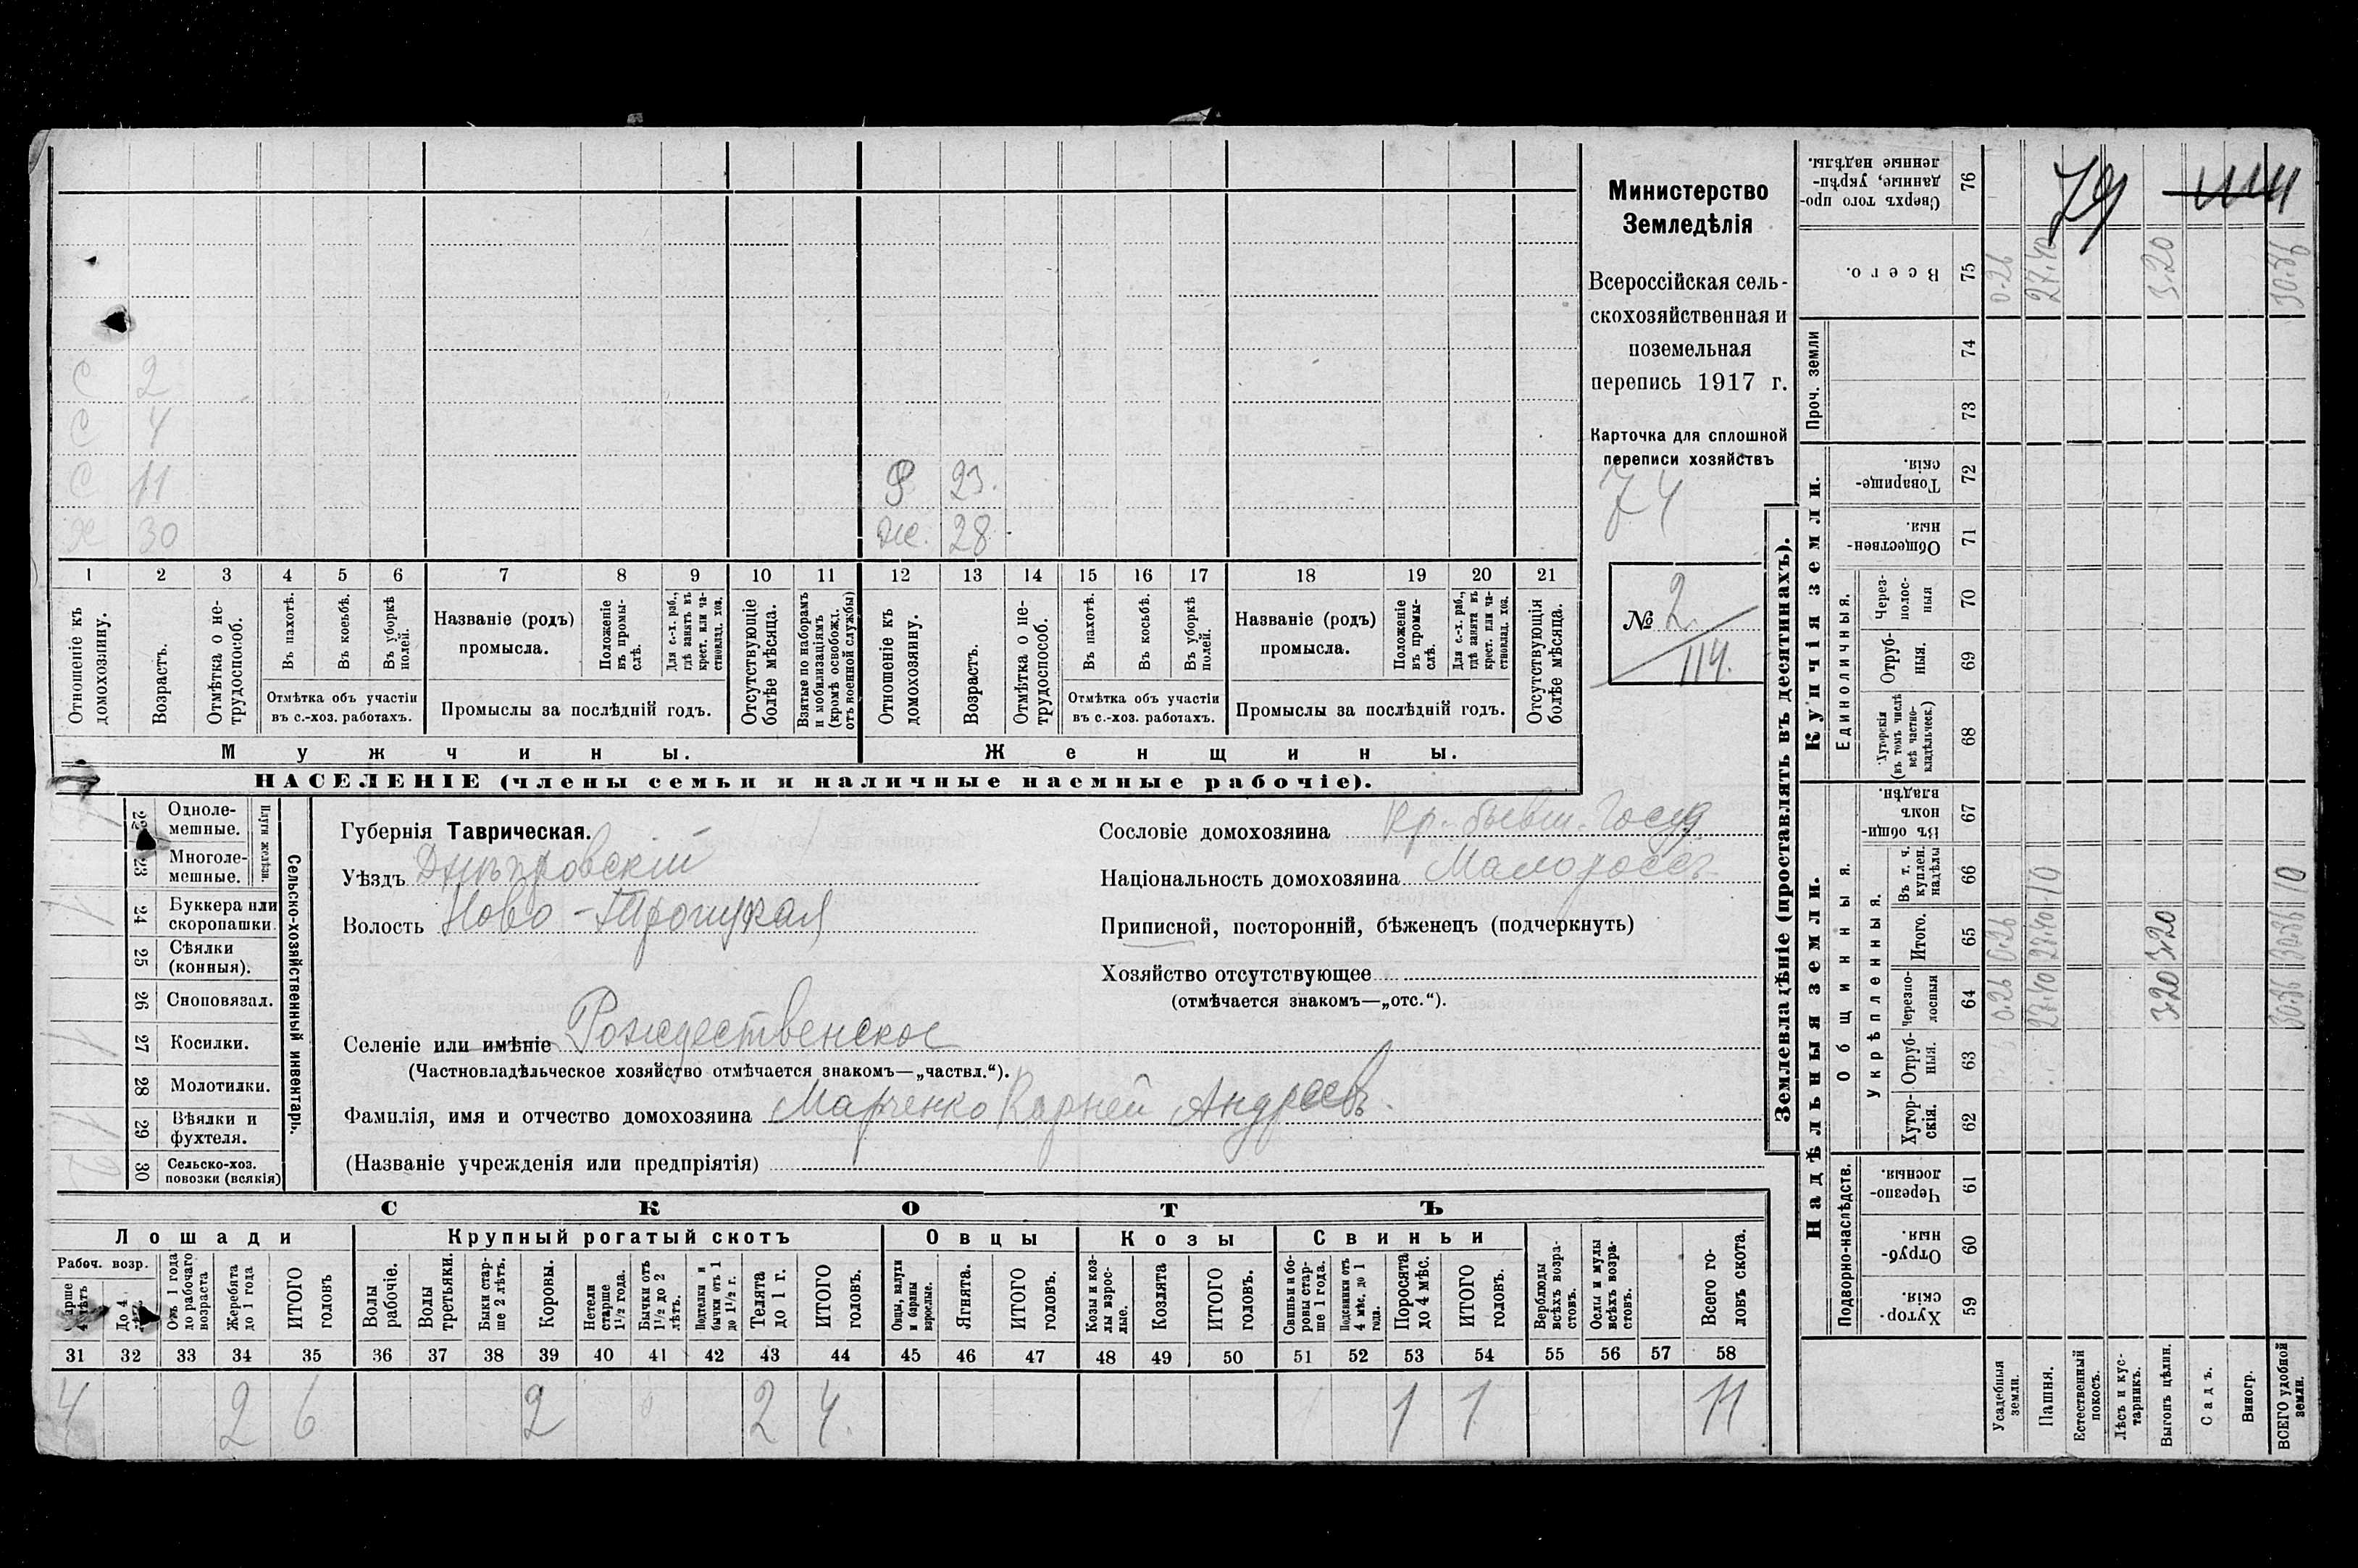 Министерство
Земледѣлія
Всероссійская сель-
скохозяйственная и
поземельная
перепись 1917 г.
Карточка для сплошной
переписи хозяйствъ
74
№ 2
114.
С 2
С 4
С 11
Х 30
Р 23.
Же. 28
1 2 3 4 5 6 7 8 9 10 11 12 13 14 15 16 17 18 19 20 21
Отношеніе къ домохозяину.
Возрастъ.
Отмѣтка о не-
трудоспособ.
Въ пахотѣ.
Въ косьбѣ.
Въ уборкѣ
полей.
Отмѣтка объ участіи
въ с.-хоз. работахъ.
Названіе (родъ)
промысла.
Положеніе
въ промы-
слѣ.
Для с.-х. раб.,
гдѣ занятъ въ
крест. или ча-
стновлад. хоз.
Промыслы за послѣдній годъ.
Отсутствующіе
болѣе мѣсяца.
Взятые по наборамъ
и мобилизаціямъ
(кромѣ освобожд.
отъ военной службы)
Отношеніе къ
домохозяину.
Возрастъ.
Отмѣтка о не-
трудоспособ.
Въ пахотѣ.
Въ косьбѣ.
Въ уборкѣ
полей.
Отмѣтка объ участіи
въ с.-хоз. работахъ.
Названіе (родъ)
промысла.
Положеніе
въ промы-
слѣ.
Для с.-х. раб.,
гдѣ занята въ
крест. или ча-
стновлад. хоз.
Промыслы за послѣдній годъ.
Отсутствующія
болѣе мѣсяца.
Мужчины.
Женщины.
НАСЕЛЕНІЕ (члены семьи и наличные наемные рабочіе).
Сельско-хозяйственный инвентарь.
Плуги желѣзн.
22 Одноле-
мешные.
23 Многоле-
мешные.
24 Буккера или
скоропашки. 1
25 Сѣялки
(конныя).
26 Сноповязал.
27 Косилки. 1
28 Молотилки.
29 Вѣялки и
фухтеля. 1
30 Сельско-хоз.
повозки (всякія) 2
Губернія Таврическая.
Уѣздъ Днѣпровскій
Волость Ново-Троицкая
Селеніе или имѣніе Рождественское
(Частновладѣльческое хозяйство отмѣчается знакомъ—„частвл.“).
Фамилія, имя и отчество домохозяина Марченко Карней Андреевъ.
(Названіе учрежденія или предпріятія)
Сословіе домохозяина Кр.-бывш. Госуд
Національность домохозяина Малороссъ
Приписной, посторонній, бѣженецъ (подчеркнуть)
Хозяйство отсутствующее
(отмѣчается знакомъ—„отс.“).
СКОТЪ
Лошади
Рабоч. возр.
Старше
4 лѣтъ
До 4
лѣтъ
Отъ 1 года
до рабочаго
возраста
Жеребята
до 1 года
ИТОГО
головъ
Крупный рогатый скотъ
Волы
рабочіе.
Волы
третьяки.
Быки стар-
ше 2 лѣтъ.
Коровы.
Нетели
старше
1½ года.
Бычки отъ
1½ до 2
лѣтъ.
Подтелки и
бычки отъ 1
до 1½ г.
Телята
до 1 г.
ИТОГО
головъ.
Овцы
Овцы, валухи
и бараны
взрослые.
Ягнята.
ИТОГО
головъ.
Козы
Козы и коз-
лы взрос-
лые.
Козлята
ИТОГО
головъ.
Свиньи
Свиньи и бо-
ровы стар-
ше 1 года.
Подсвинки отъ
4 мѣс. до 1
года.
Поросята
до 4 мѣс.
ИТОГО
головъ.
Верблюды
всѣхъ возра-
стовъ.
Ослы и мулы
всѣхъ возра-
стовъ.
Всего го-
ловъ скота.
31 32 33 34 35 36 37 38 39 40 41 42 43 44 45 46 47 48 49 50 51 52 53 54 55 56 57 58
4 2 6 2 2 4. 1 1 11
Землевладѣніе (проставлять въ десятинахъ).
79
Сверхъ того про-
данные, укрѣп-
ленные надѣлы. 76
Всего. 75 0.26 27.40 3.20 30.86
Проч. земли
74
73
Купчія земли.
Товарище-
скія. 72
Обществен-
ныя. 71
Единоличныя.
Через-
полос-
ныя 70
Отруб-
ныя. 69
Хуторскія
(въ томъ числѣ
всѣ частно-
владѣльческ.) 68
Надѣльныя земли.
Общинныя.
Въ общи-
номъ
владѣн. 67
Укрѣпленныя.
Въ т. ч.
куплен.
надѣлы 66 10 10
Итого. 65 0.26 27.40 3.20 30.86
Черезпо-
лосныя 64 0.26 27.40 3.20 30.86
Отруб-
ныя. 63
Хутор-
скія. 62
Подворно-наслѣдств.
Черезпо-
лосныя. 61
Отруб-
ныя. 60
Хутор-
скія. 59
Усадебныя
земли.
Пашня.
Естественный
покосъ.
Лѣсъ и кус-
тарникъ.
Выгонъ цѣлин.
Садъ.
Виногр.
ВСЕГО удобной
земли.